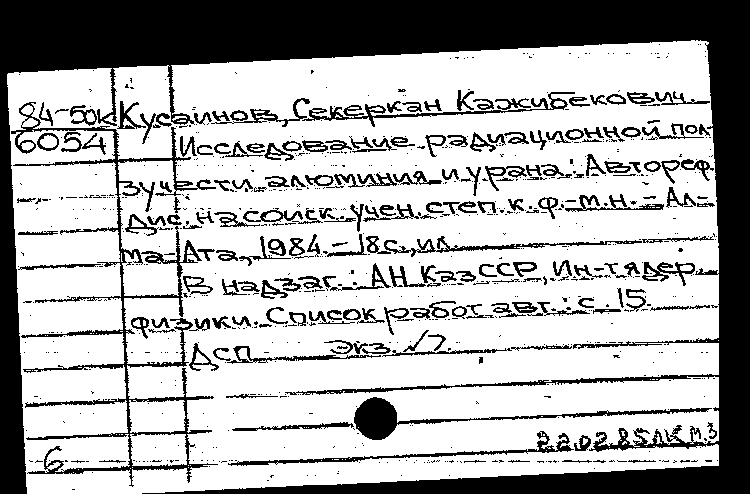 84-50к Кусаинов, Секеркан Кажибекович.
6054 Исследование радиационной пол-
зучести алюминия и урана : Автореф.
дис. на соиск. учен. степ. к. ф.-м.н. – Ал-
ма-Ата, 1984. – 18с., ил.
В надзаг. : АН КазССР, Ин-т ядер.
физики. Список работ авт. : с. 15.
ДСП Экз. №7.
22.02.85 ЛК м.3
6